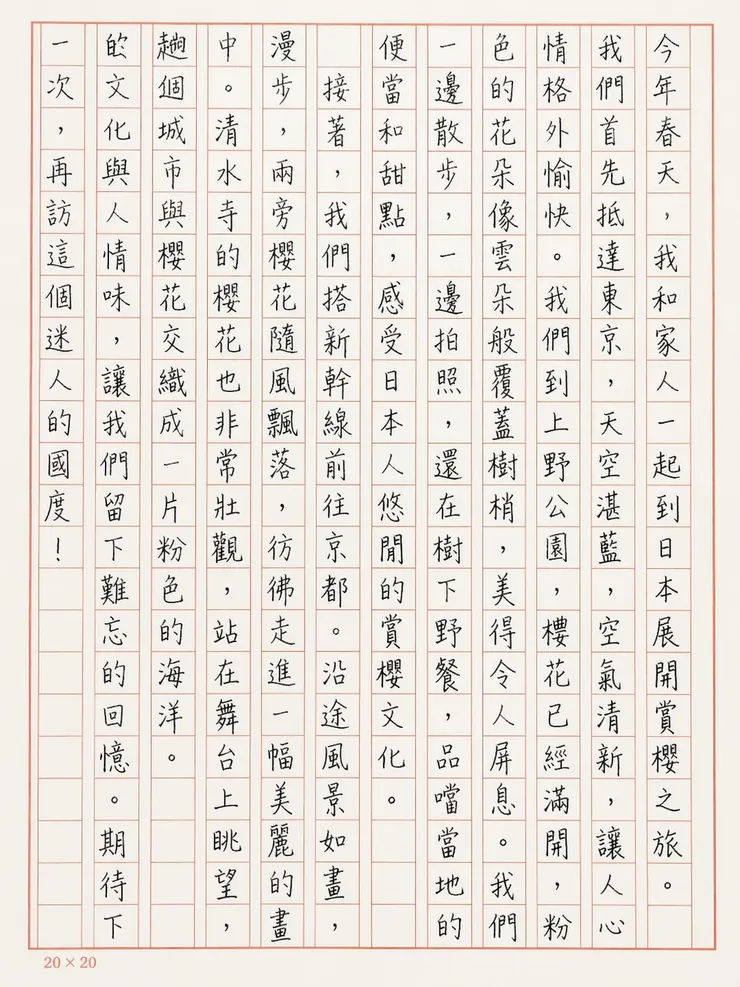 今年春天，我和家人一起到日本展開賞櫻之旅。
我們首先抵達東京，天空湛藍，空氣清新，讓人心
情格外愉快。我們到上野公園，樓花已經滿開，粉
色的花朵像雲朵般覆蓋樹梢，美得令人屏息。我們
一邊散步，一邊拍照，還在樹下野餐，品噹當地的
便當和甜點，感受日本人悠閒的賞櫻文化。
接著，我們搭新幹線前往京都。沿途風景如畫，
漫步，兩旁櫻花隨風飄落，彷彿走進一幅美麗的畫
中。清水寺的櫻花也非常壯觀，站在舞台上眺望，
個城市與櫻花交織成一片粉色的海洋。
的文化與人情味，讓我們留下難忘的回憶。期待下
一次，再訪這個迷人的國度！
20×20